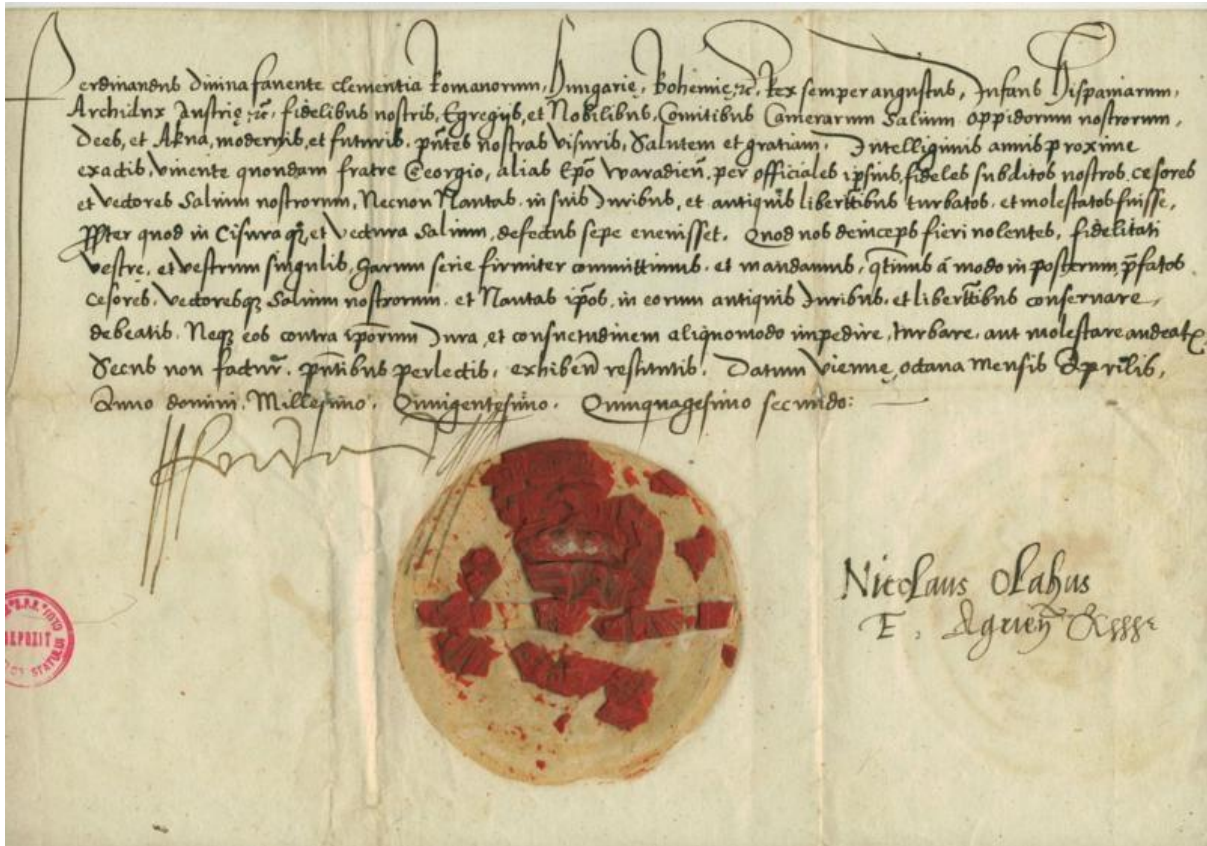 Ferdinandus divina favente clementia Romanorum, Hungarie, Bohemie, &c. Rex semper augustus, Infans Hispaniarum,
Archidux Austrie, &c. fidelibus nostris, Egregijs, et Nobilibus, Comitibus Camerarum Salium oppidorum nostrorum,
Dees, et Akna, modernis, et futuris, pntes nostras visuris, Salutem et gratiam. Intelligimus annis proxime
exactis, vivente quondam fratre Georgio, alias Epo waradien, per officiales ipsius, fideles subditos nostros, cesores
et vectores Salium nostrorum, Necnon Nautas, in suis Juribus, et antiquis libertibus turbatos, et molestatos fuisse,
Ppter quod in Cisura qz, et vectura Salium, defectus sepe evenisset. Quod nos deinceps fieri nolentes, fidelitati
vestre, et vestrum singulis, harum serie firmiter committimus, et mandamus, qtenus a modo in posterum, pfatos
cesores, vectoresqz Salium nostrorum, et Nautas ipos, in eorum antiquis Juribus, et libertibus conservare,
debeatis. Neqz eos contra iporum Jura, et consuetudinem aliquomodo impedire, turbare, aut molestare audeatis.
Secus non factur. pntibus perlectis, exhiben restitutis. Datum vienne, octava mensis Aprilis,
Anno domini, Millesimo, Quingentesimo, Quinquagesimo secundo:
Nicolaus Olahus
E. Agrien
DEPOZIT
STATULUI